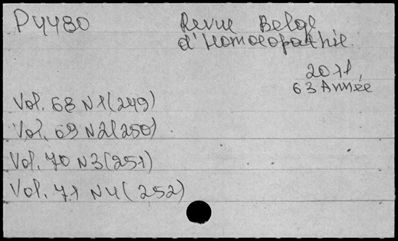 P4480
Revue Belge
d'Homoeopathie.
2011
63 Année
Vol. 68 N1(249)
Vol. 69 N2(250)
Vol. 70 N3(251)
Vol. 71 N4(252)